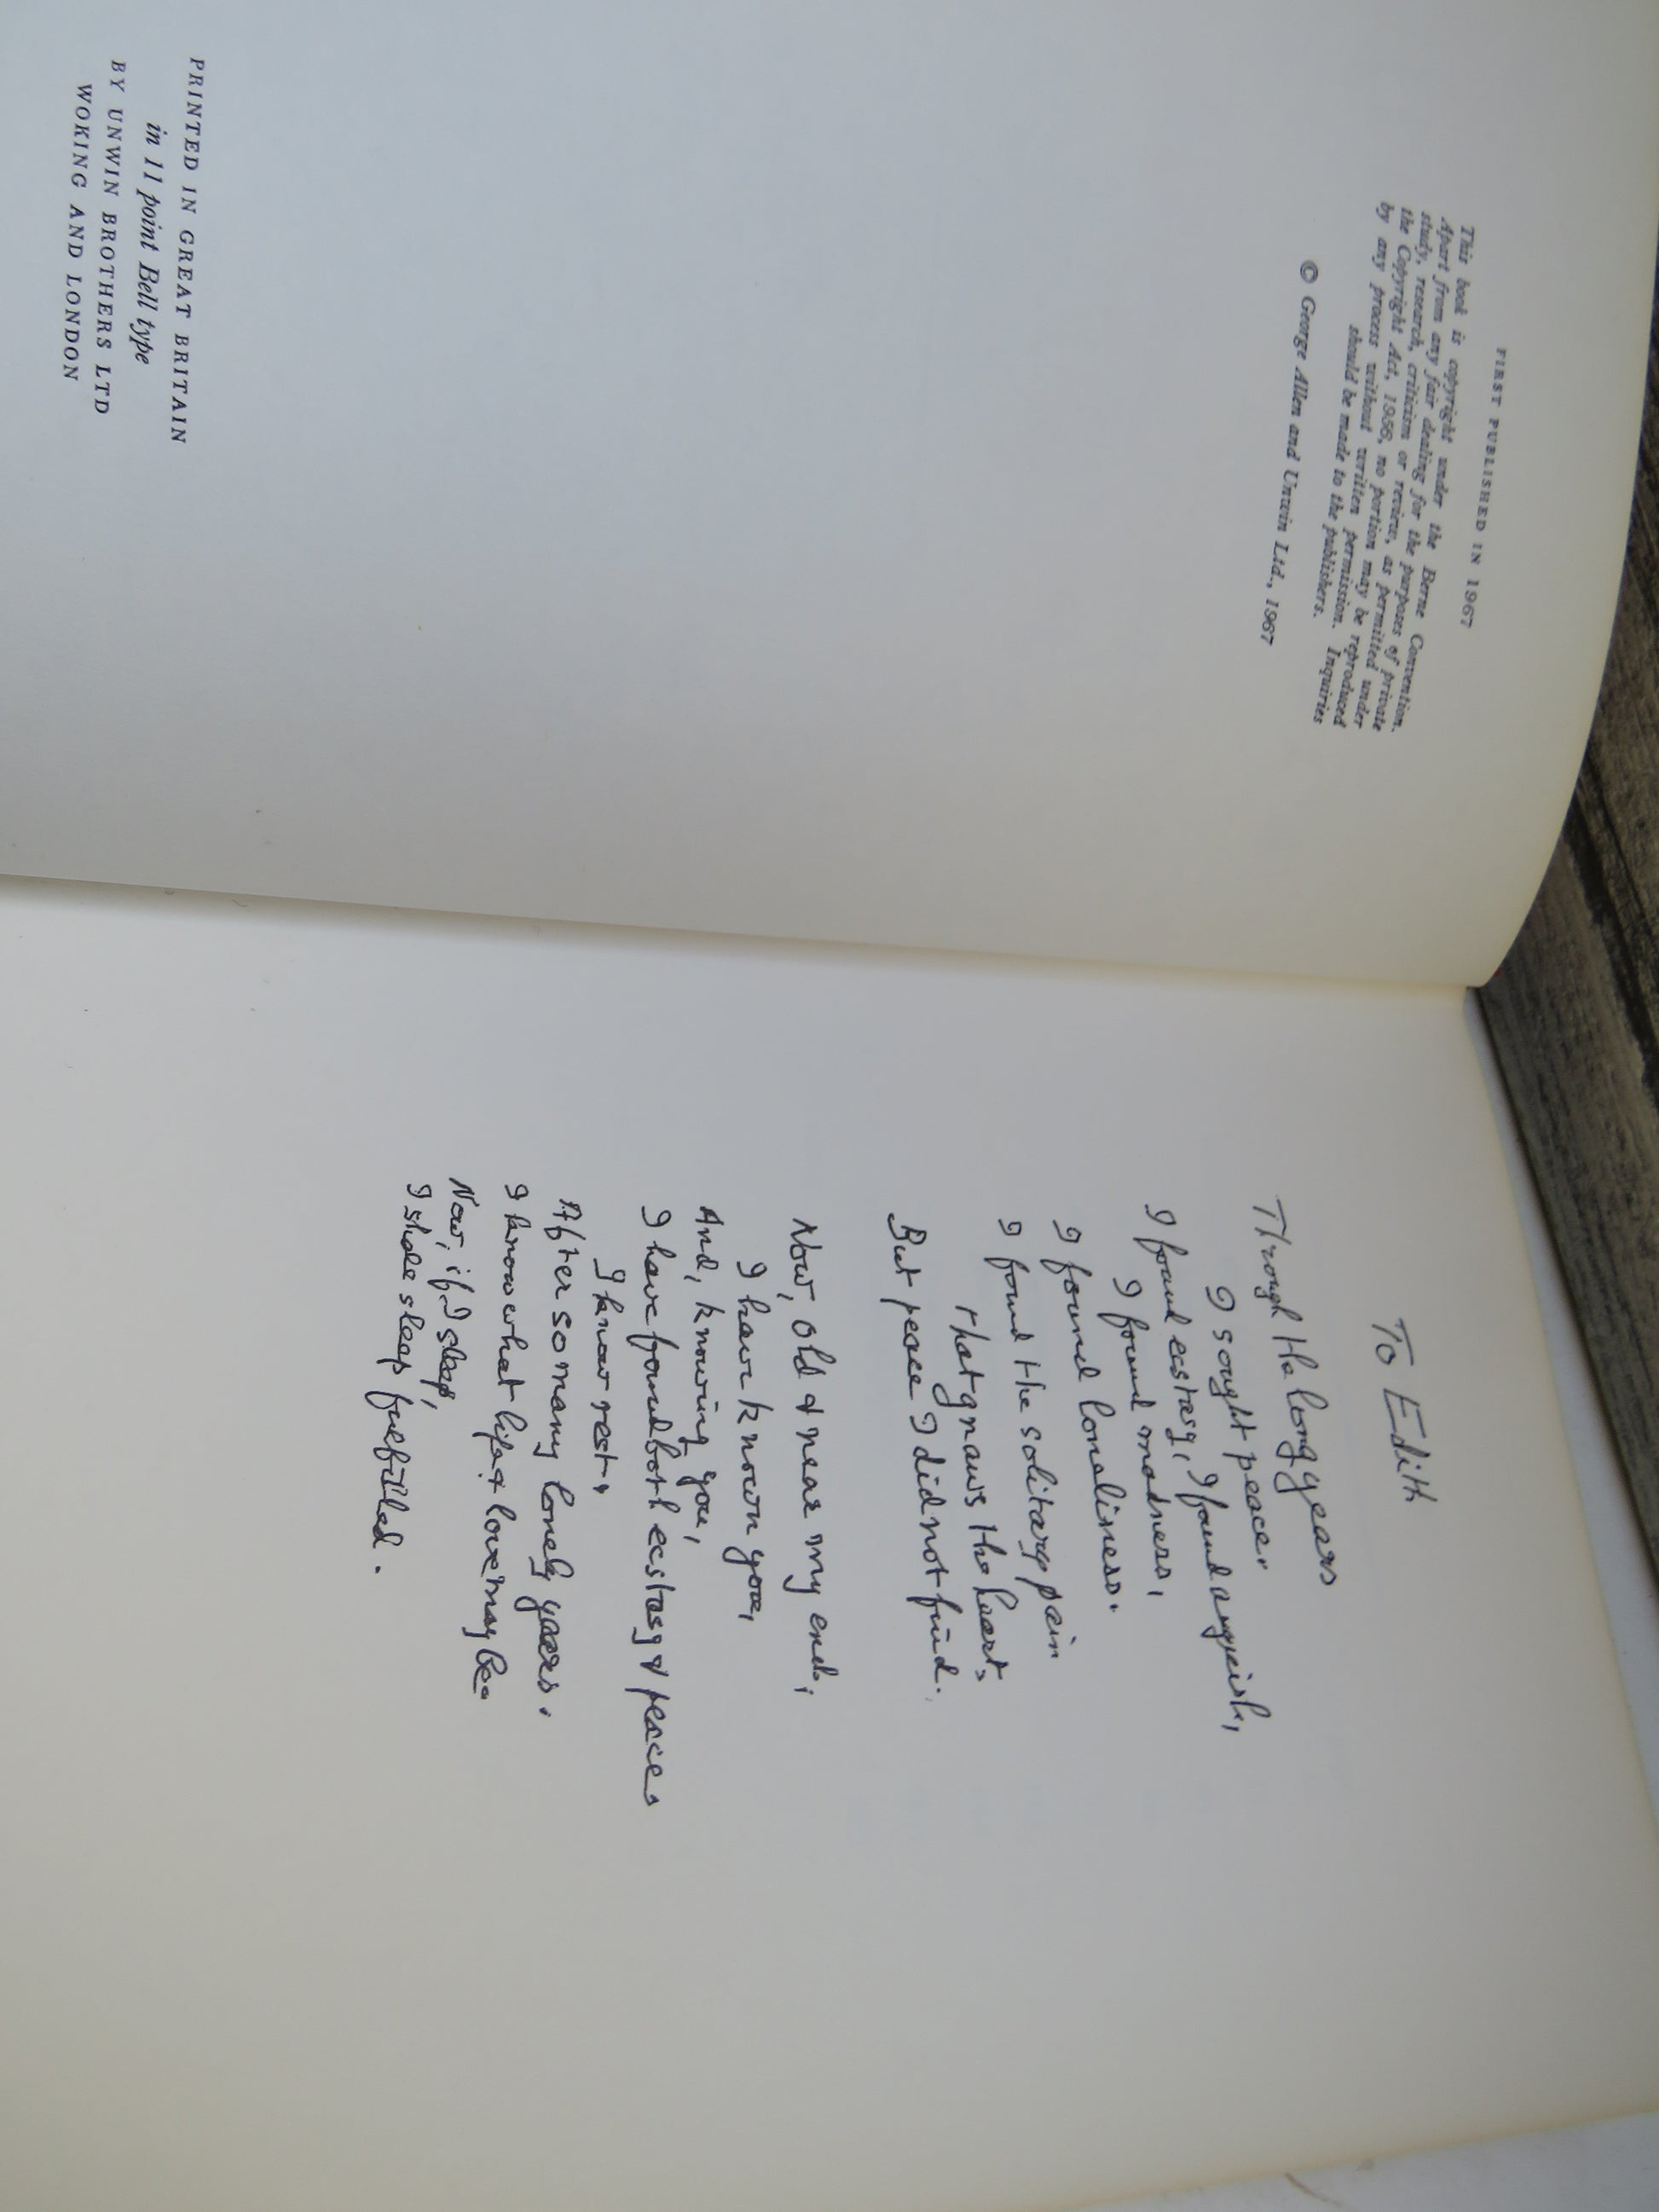 FIRST PUBLISHED IN 1967
This book is copyright under the Berne Convention.
Apart from any fair dealing for the purposes of private
study, research, criticism or review, as permitted under
the Copyright Act, 1956, no portion may be reproduced
by any process without written permission. Inquiries
should be made to the publishers.
© George Allen and Unwin Ltd., 1967
PRINTED IN GREAT BRITAIN
in 11 point Bell type
BY UNWIN BROTHERS LTD
WOKING AND LONDON
To Edith
Through the long years
I sought peace.
I found ecstasy, I found anguish,
I found madness,
I found loneliness.
I found the solitary pain
that gnaws the heart,
But peace I did not find.
Now, old & near my end,
I have known you,
And, knowing you,
I have found both ecstasy & peace
I know rest,
After so many lonely years.
I know what life & love may be.
Now, if I sleep,
I shall sleep fulfilled.